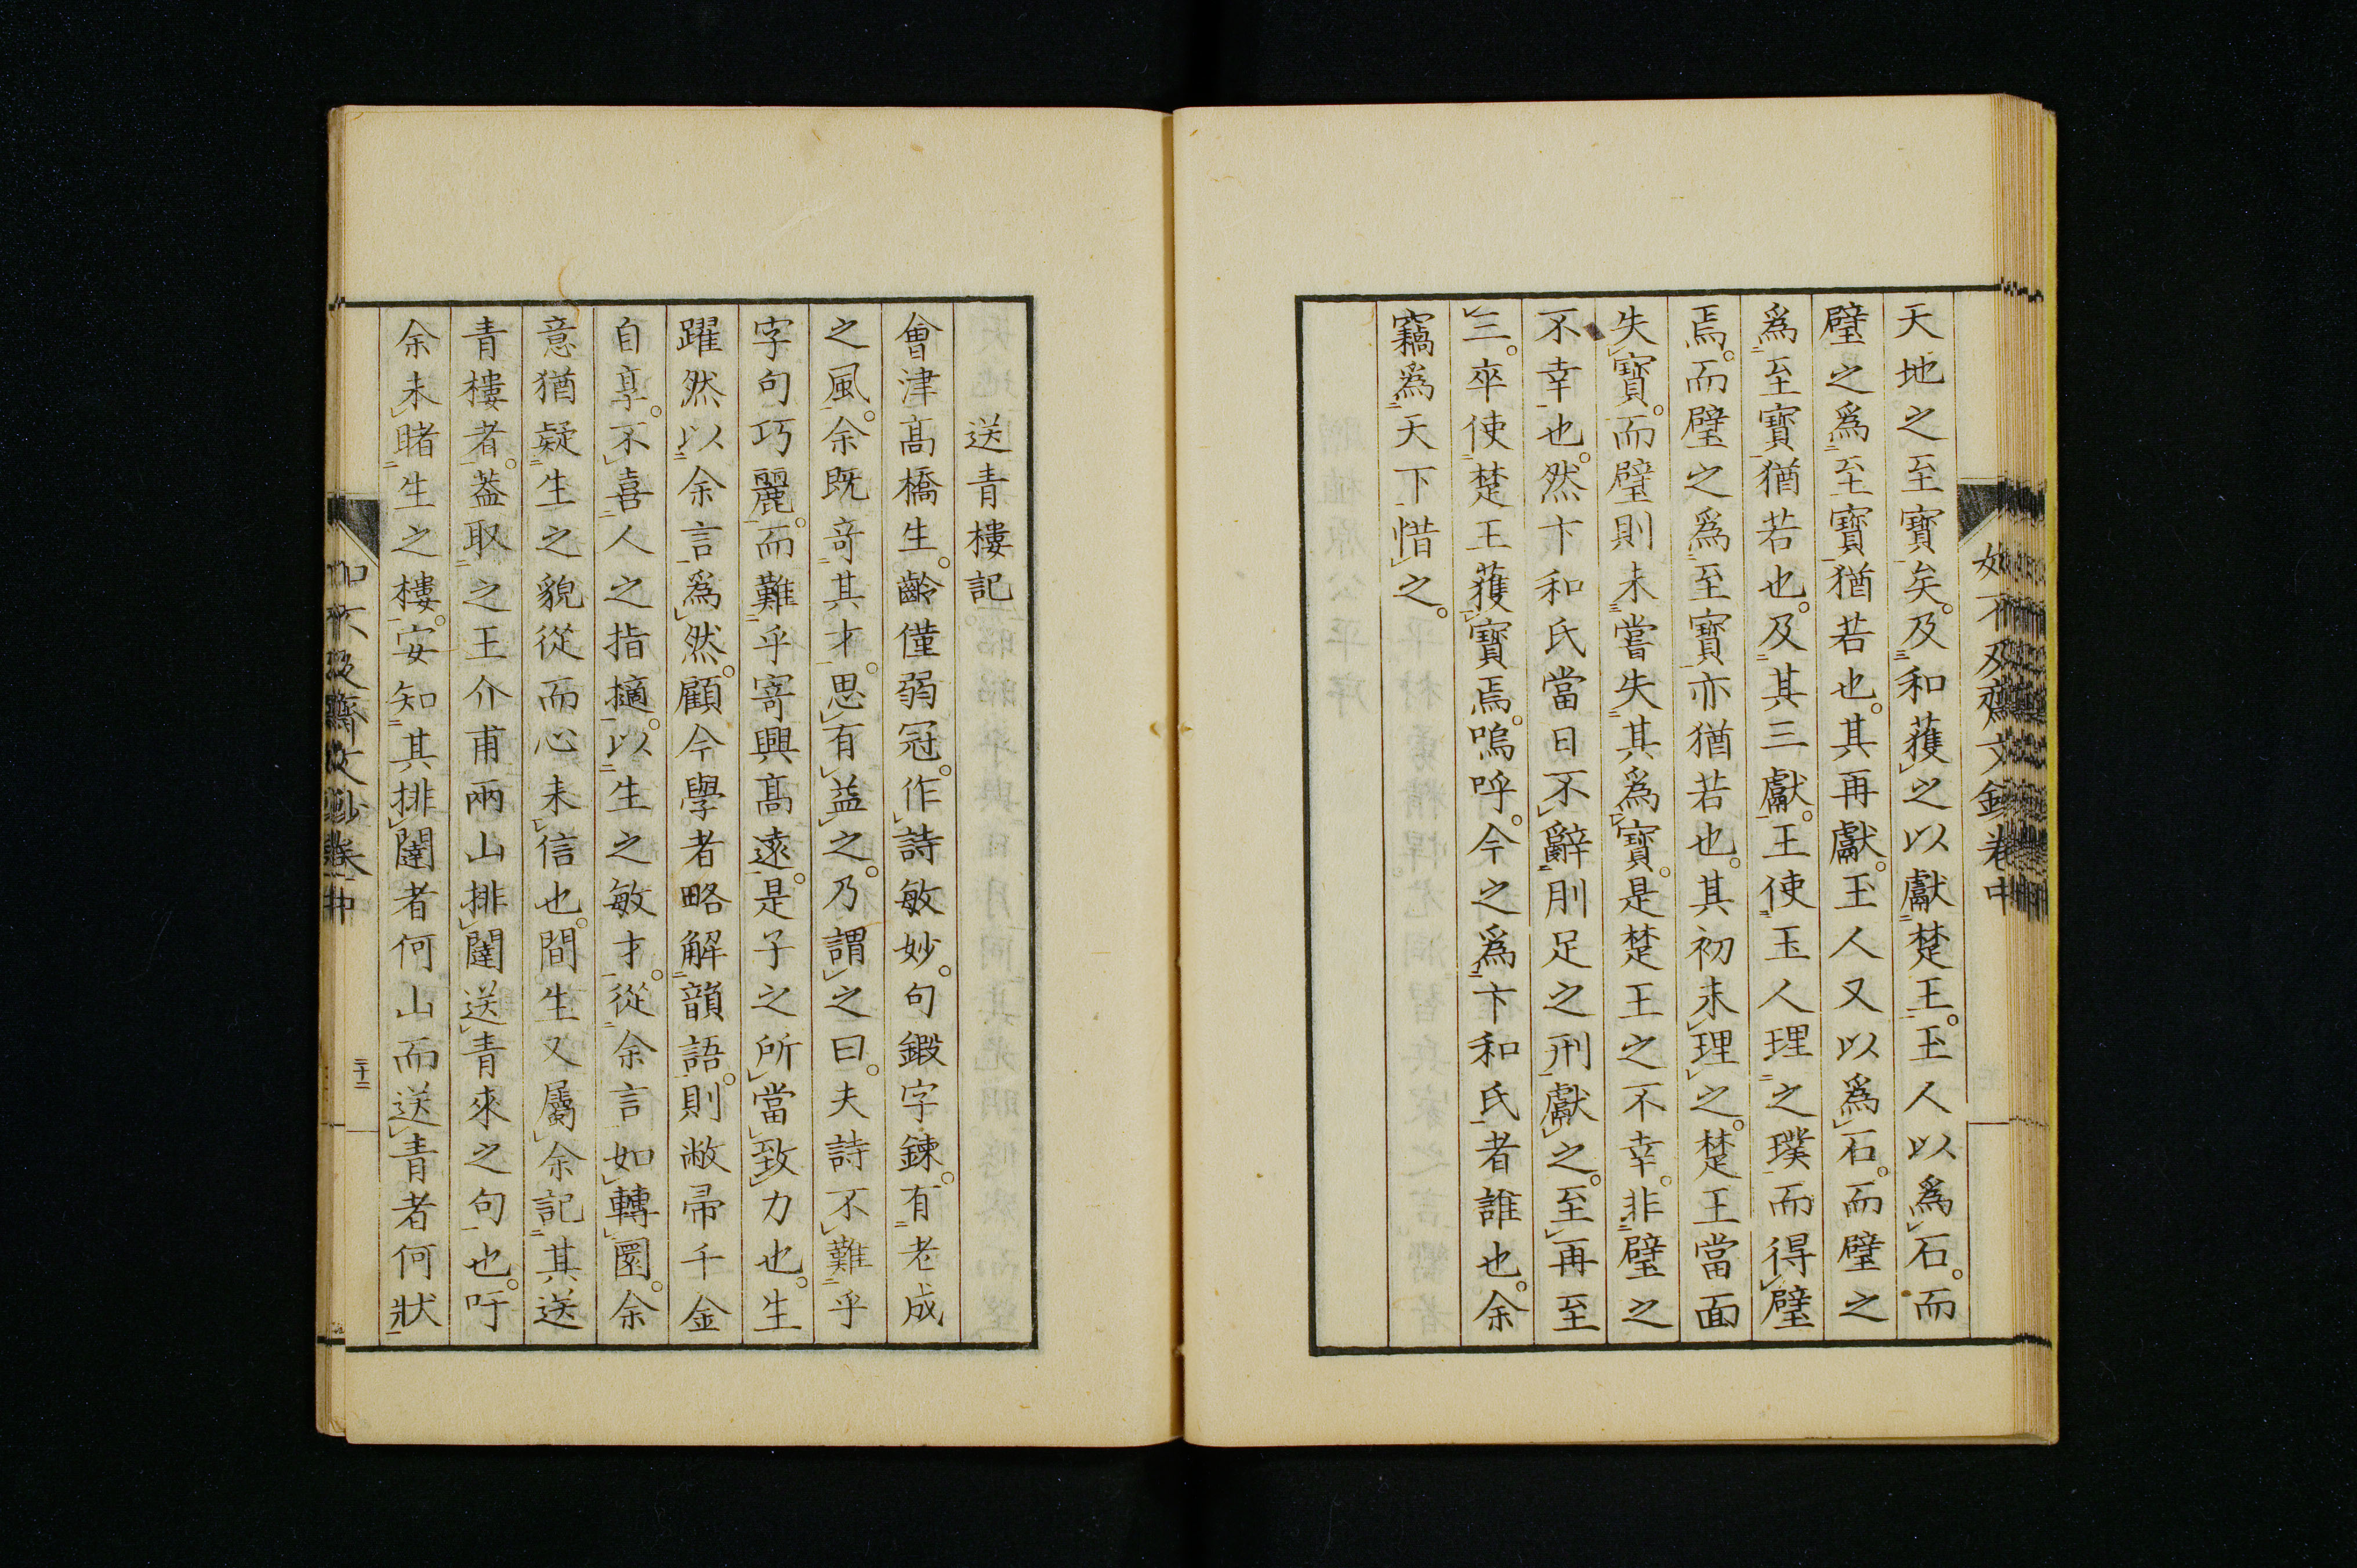 如不及齋文鈔卷中
天地之至寶矣。及和獲之以獻楚王。玉人以爲石。而
璧之爲至寶猶若也。其再獻。玉人又以爲石。而璧之
爲至寶猶若也。及其三獻。王使玉人理之璞而得璧
焉。而璧之爲至寶亦猶若也。其初未理之。楚王當面
失寶。而璧則未嘗失其爲寶。是楚王之不幸。非璧之
不幸也。然卞和氏當日不辭刖足之刑獻之。至再至
三。卒使楚王獲寶焉。嗚呼。今之爲卞和氏者誰也。余
竊爲天下惜之。
送青樓記
會津高橋生。齡僅弱冠。作詩敏妙。句鍛字鍊。有老成
之風。余既竒其才。思有益之。乃謂之曰。夫詩不難乎
字句巧麗。而難乎寄興高遠。是子之所當致力也。生
躍然以余言爲然。顧今學者略解韻語。則敝帚千金
自享。不喜人之指擿。以生之敏才。從余言如轉圜。余
意猶疑生之貌從而心未信也。間生又屬余記其送
青樓者。葢取之王介甫兩山排闥送青來之句也。吁
余未睹生之樓。安知其排闥者何山而送青者何狀
如不及齋文鈔卷中
二十二